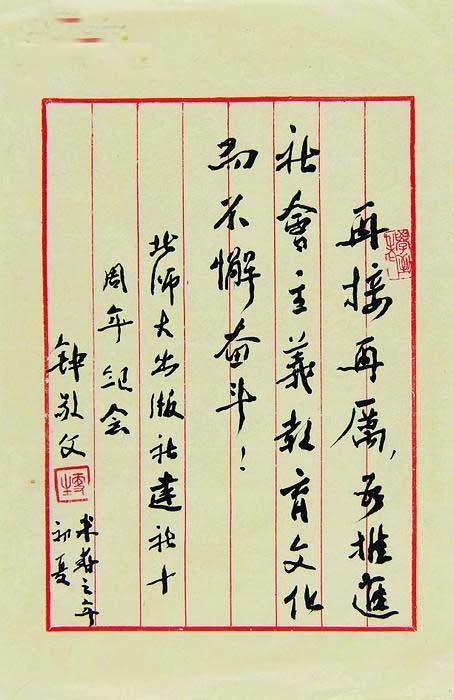 再接再厲，為推進
社會主義教育文化
而不懈奋斗！
北师大出版社建社十
周年纪念
钟敬文
米寿之年
初夏